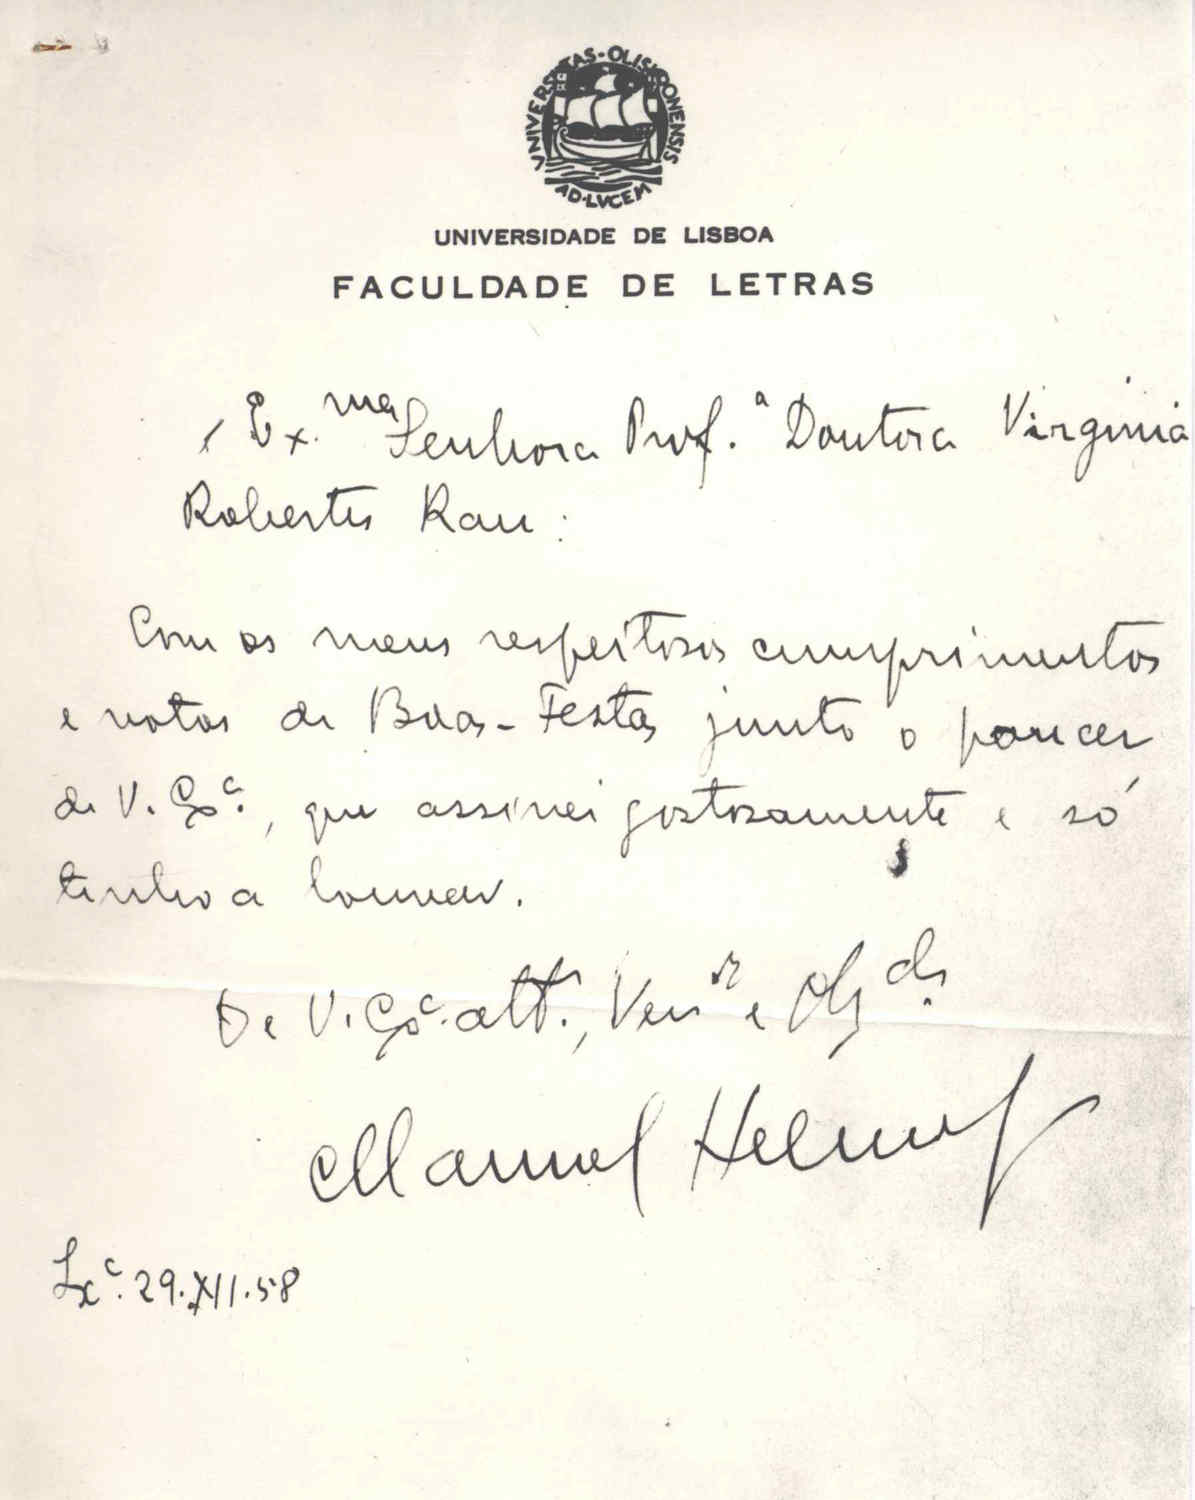 UNIVERSITAS-OLISIPONENSIS
AD·LVCEM
UNIVERSIDADE DE LISBOA
FACULDADE DE LETRAS
Ex.ma Senhora Prof.ª Doutora Virginia
Robertes Rau:
Com os meus respeitosos cumprimentos
e votos de Boas-Festas junto o parecer
de V. Exc., que assinei gostosamente e só
tenho a louvar.
De V. Exc. att., Ven.or e Obg.do
Manuel Heleno
Lx.c 29.XII.58